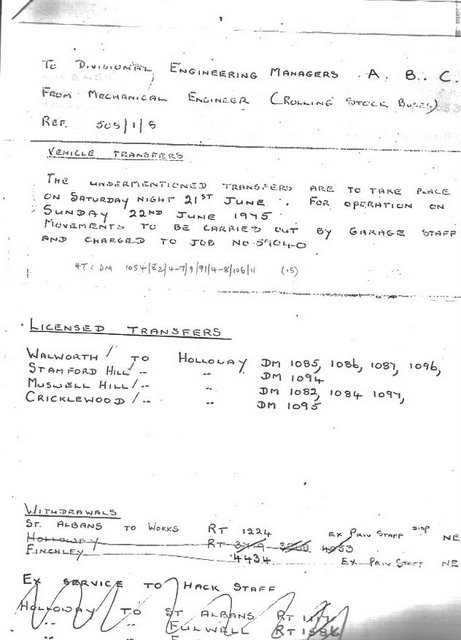 To Divisional Engineering Managers A. B. C.
From Mechanical Engineer (Rolling Stock Buses)
Ref. 505/1/5
Vehicle Transfers
The undermentioned transfers are to take place
on Saturday night 21st June. For operation on
Sunday 22nd June 1975
Movements to be carried out by garage staff
and charged to Job No 5904-0
HT: DM 1084/82/4-7/9/91/4-8/106/11 (15)
Licensed Transfers
Walworth / to Holloway DM 1085, 1086, 1087, 1096,
Stamford Hill / -- -- DM 1094
Muswell Hill / -- -- DM 1082, 1084 1097,
Cricklewood / -- -- DM 1095
Withdrawals
St. Albans to Works RT 1224 ex Priv Staff NE
Holloway RT 4053
Finchley 4434 Ex Priv Staff NE
Ex service to Hack Staff
Holloway to St Albans RT
" " Fulwell RT